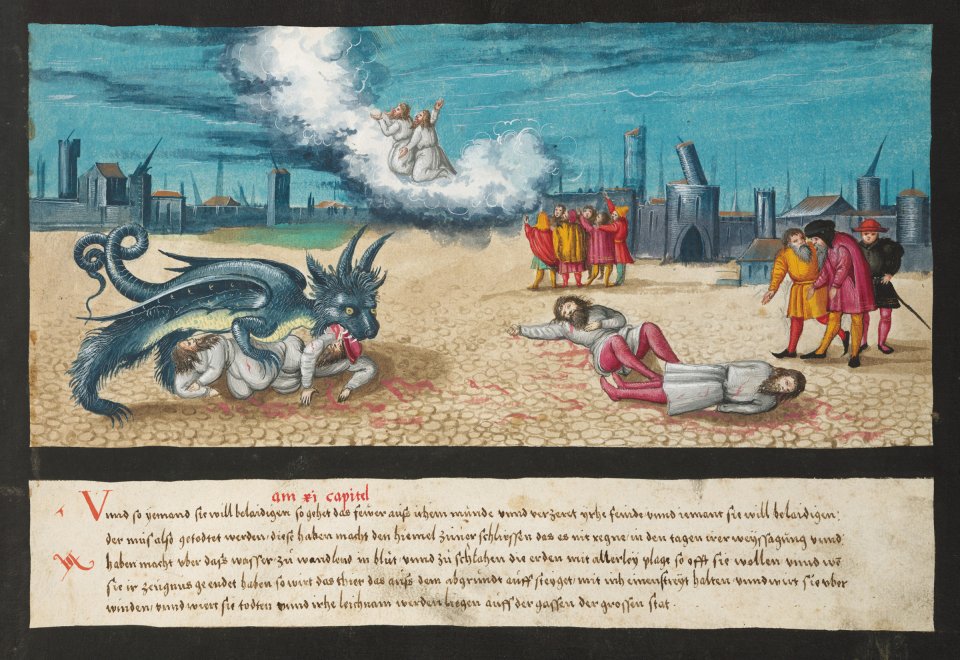 am xi capitel
Vnnd so yemand sie will belaidigen so gehet das feüwer auß irhem münde vnnd verzeret yrhe feinde vnnd iemant sie will belaidigen,
der müs also getodtet werden, diese haben macht den hiemel zuuer schliessen das es nit regne in den tagen irer weyssagung vnnd
haben macht vber dass wasser zu wandlend in blüt vnnd zu schlahen die erden mit allerley plage so offt sie wollen vnnd wē
sie ir zeugnus geendet haben so wirt das thier das auß dem abgrundt auff steyget, mit inh einen streyt halten vnnd wirt sie vber
winden, vnnd wiert sie todten vnnd irhe leichnam werden liegen auff der gassen der grossen stat.